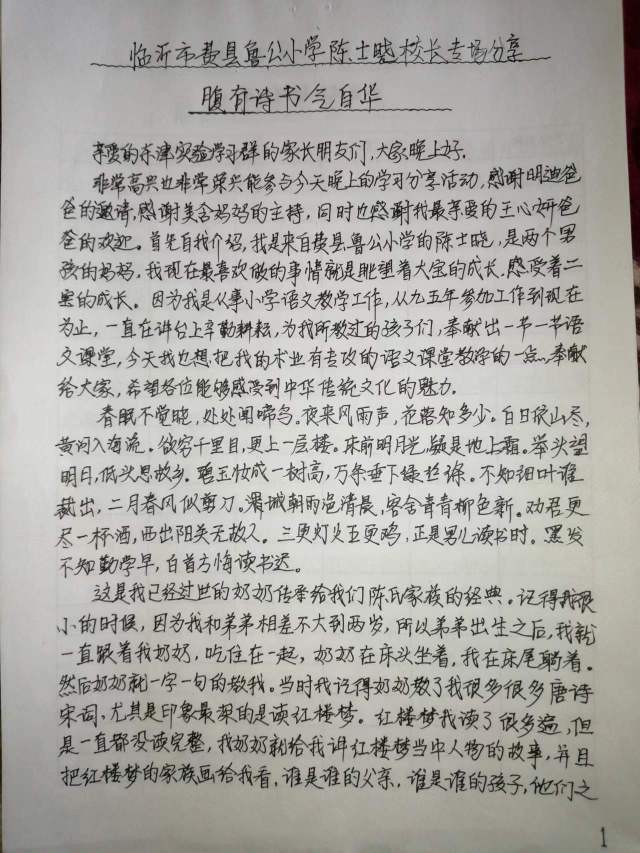 临沂市费县鲁公小学陈士晓校长专场分享
腹有诗书气自华
亲爱的东津实验学习群的家长朋友们,大家晚上好.
非常高兴也非常荣兴能参与今天晚上的学习分享活动,感谢明迪爸
爸的邀请,感谢美含妈妈的主持,同时也感谢我最亲爱的王心妍爸
爸的欢迎。首先自我介绍,我是来自费县鲁公小学的陈士晓,是两个男
孩的妈妈,我现在最喜欢做的事情就是眺望着大宝的成长,感受着二
宝的成长。因为我是从事小学语文教学工作,从九五年参加工作到现在
为止,一直在讲台上辛勤耕耘,为我所教过的孩子们,奉献出一节一节语
文课堂,今天我也想把我的术业有专攻的语文课堂教学的一点,奉献
给大家,希望各位能够感受到中华传统文化的魅力.
春眠不觉晓,处处闻啼鸟。夜来风雨声,花落知多少。白日依山尽,
黄河入海流。欲穷千里目,更上一层楼。床前明月光,疑是地上霜。举头望
明日,低头思故乡。碧玉妆成一树高,万条垂下绿丝绦。不知细叶谁
裁出,二月春风似剪刀。渭城朝雨浥清晨,客舍青青柳色新。劝君更
尽一杯酒,西出阳关无故人。三更灯火五更鸡,正是男儿读书时。黑发
不知勤学早,白首方悔读书迟。
这是我已经过世的奶奶传承给我们陈氏家族的经典。记得我很
小的时候,因为我和弟弟相差不大到两岁,所以弟弟出生之后,我就
一直跟着我奶奶,吃住在一起,奶奶在床头坐着,我在床尾躺着。
然后奶奶就一字一句的教我。当时我记得奶奶教了我很多很多唐诗
宋词,尤其是印象最深的是读红楼梦。红楼梦我读了很多遍,但
是一直都没读完整,我奶奶就给我讲红楼梦当中人物的故事,并且
把红楼梦的家族画给我看,谁是谁的父亲,谁是谁的孩子,他们之
1